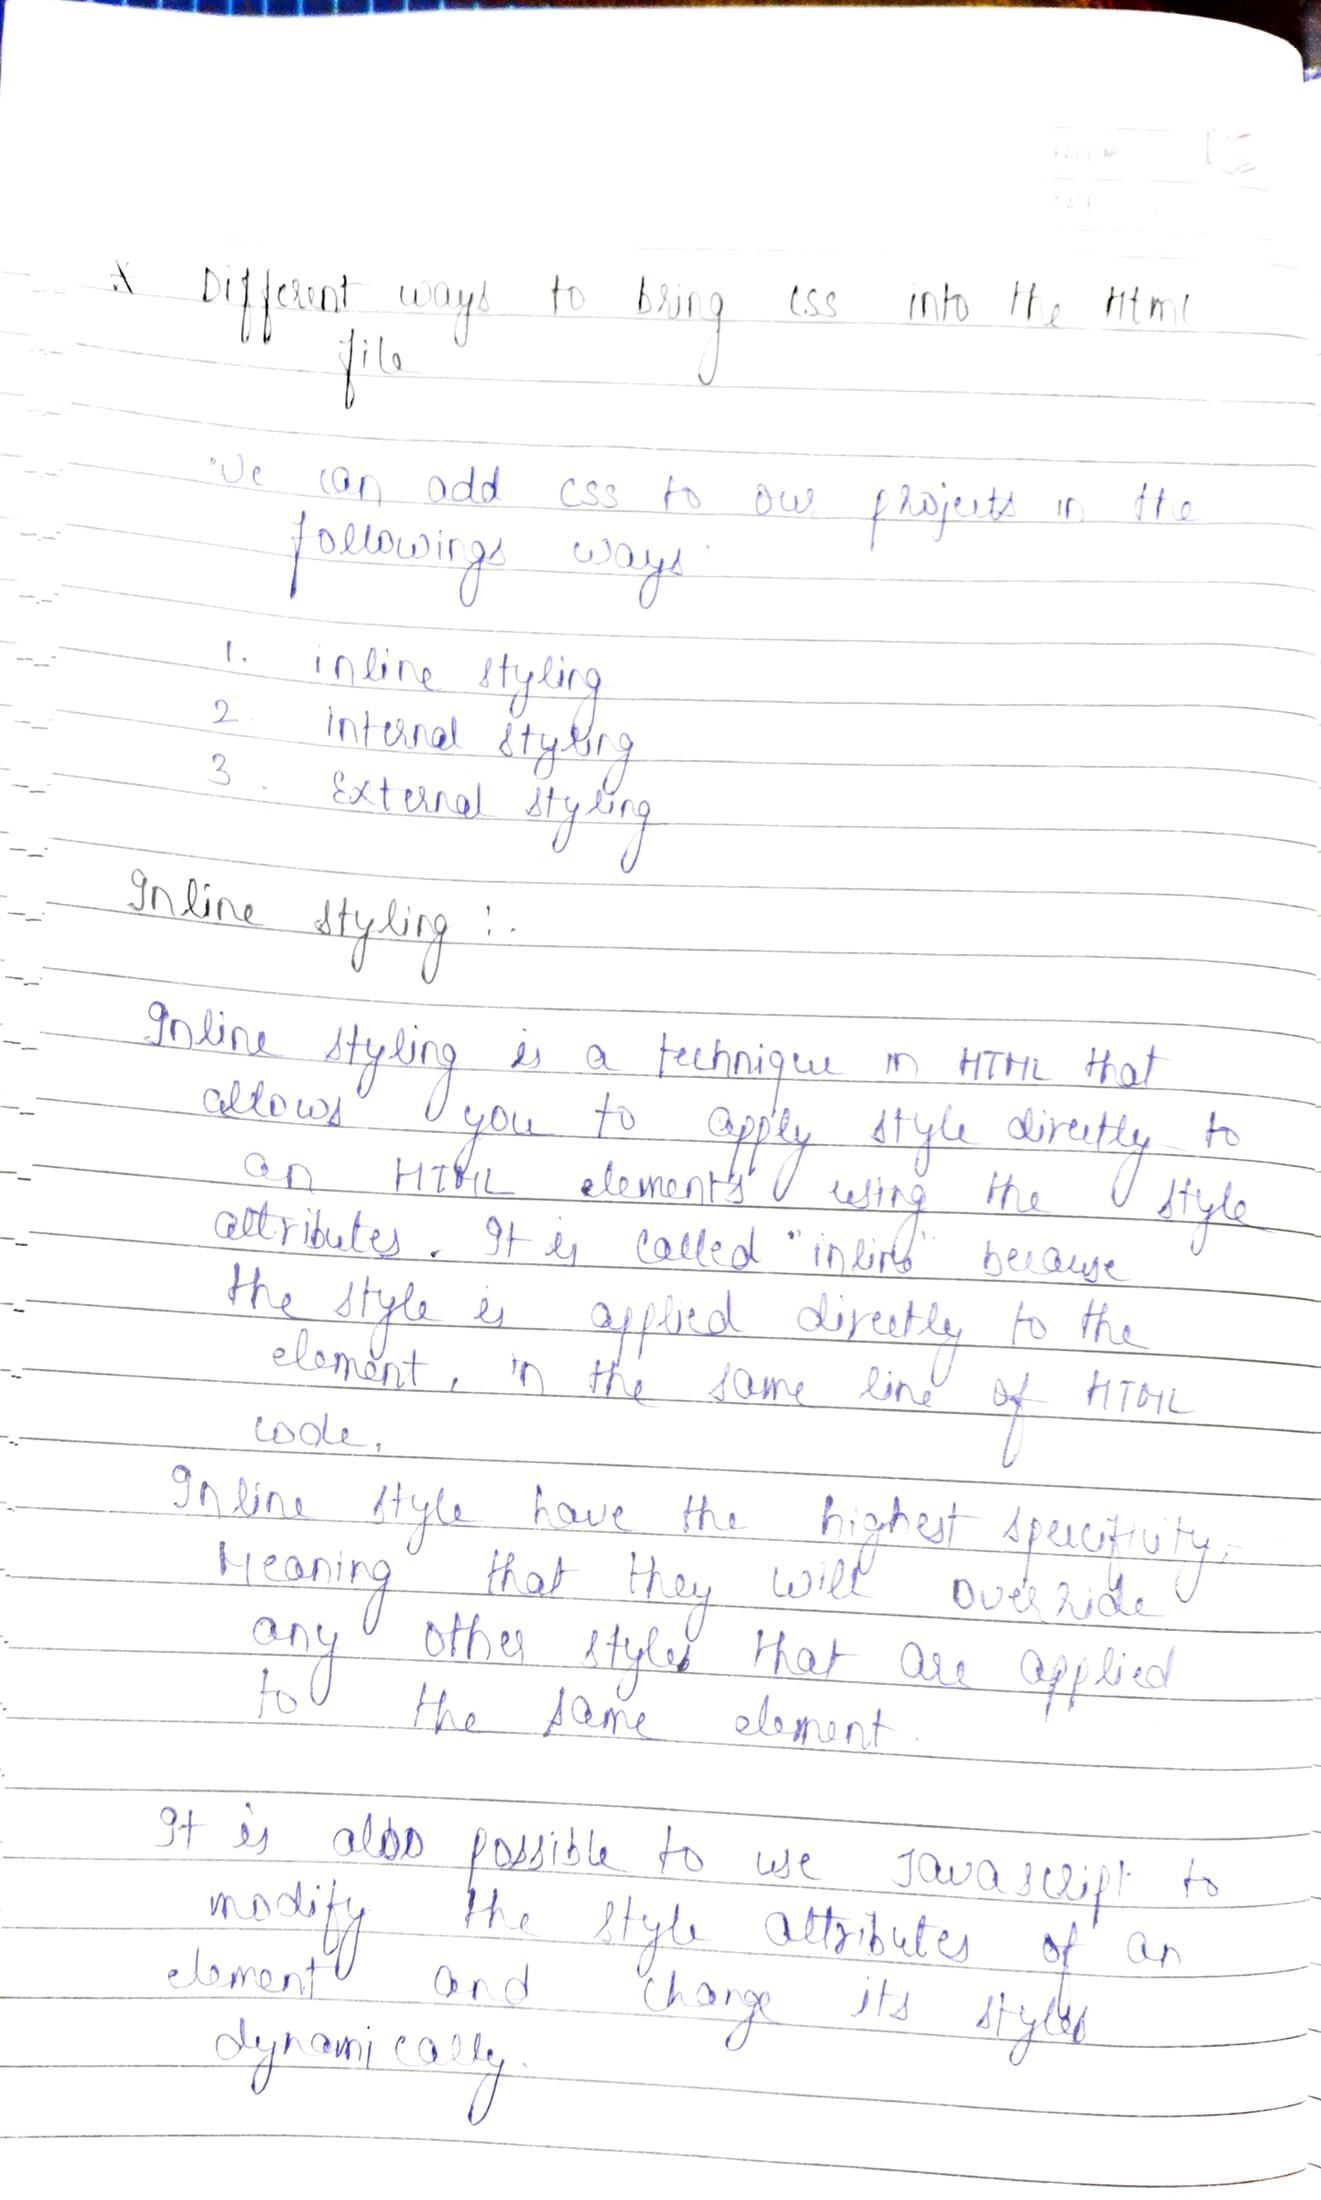 * Different ways to bring css into the Html
file
We can add css to our projects in the
followings ways:
1. inline styling
2. internal styling
3. External styling
Inline styling :-
Inline styling is a technique in HTML that
allows you to apply style directly to
an HTML elements using the style
attributes. It is called "inline" because
the style is applied directly to the
element, in the same line of HTML
code.
Inline style have the highest specifivity,
Meaning that they will override
any other styles that are applied
to the same element.
It is also possible to use Javascript to
modify the style attributes of an
element and change its styles
dynamically.